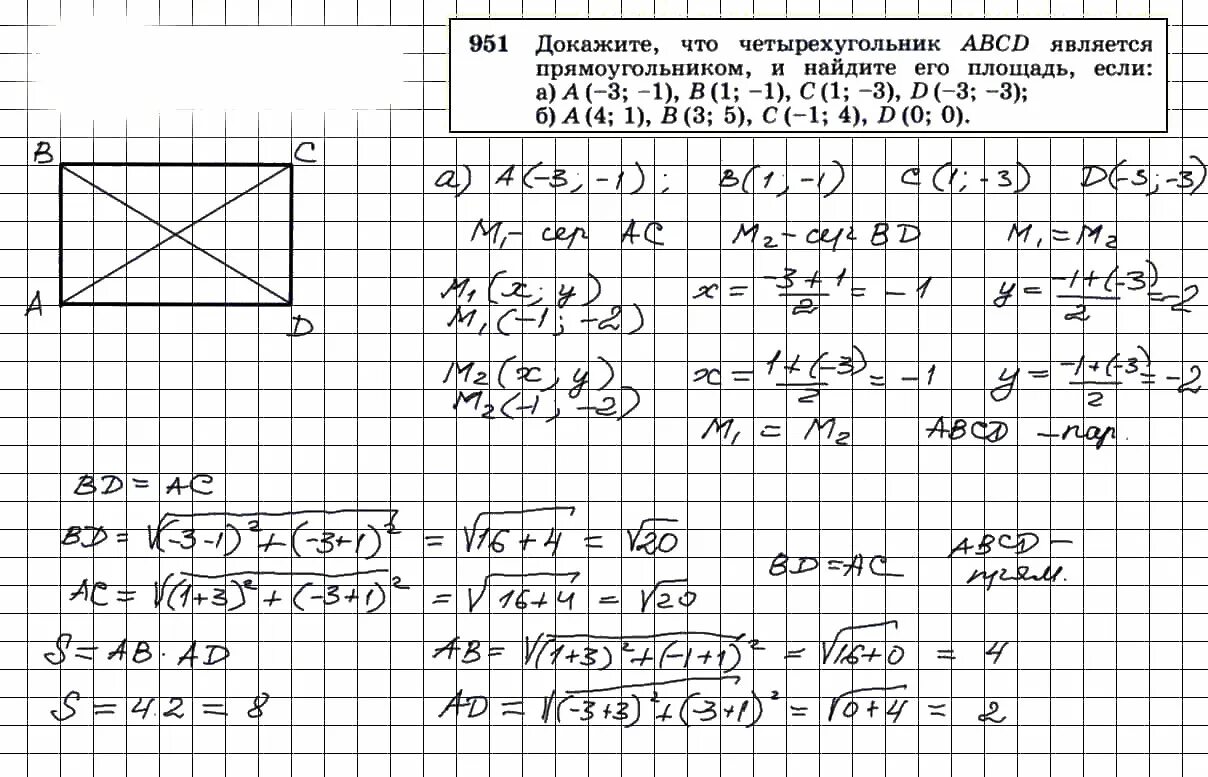 951 Докажите, что четырехугольник ABCD является
прямоугольником, и найдите его площадь, если:
а) A (−3; −1), B (1; −1), C (1; −3), D (−3; −3);
б) A (4; 1), B (3; 5), C (−1; 4), D (0; 0).
B
C
A
D
а) A (−3; −1); B (1; −1) C (1; −3) D (−3; −3)
M₁ – сер AC M₂ – сер BD M₁ = M₂
M₁ (x; y) x = (−3 + 1)/2 = −1 y = (−1 + (−3))/2 = −2
M₁ (−1; −2)
M₂ (x; y) x = (1 + (−3))/2 = −1 y = (−1 + (−3))/2 = −2
M₂ (−1; −2)
M₁ = M₂ ABCD – пар.
BD = AC
BD = √((−3 −1)² + (−3+1)²) = √(16 + 4) = √20
AC = √((1+3)² + (−3+1)²) = √(16+4) = √20
BD = AC ABCD –
прям.
S = AB · AD AB = √((1+3)² + (−1+1)²) = √(16+0) = 4
S = 4.2 = 8 AD = √((−3+3)² + (−3+1)²) = √(0+4) = 2